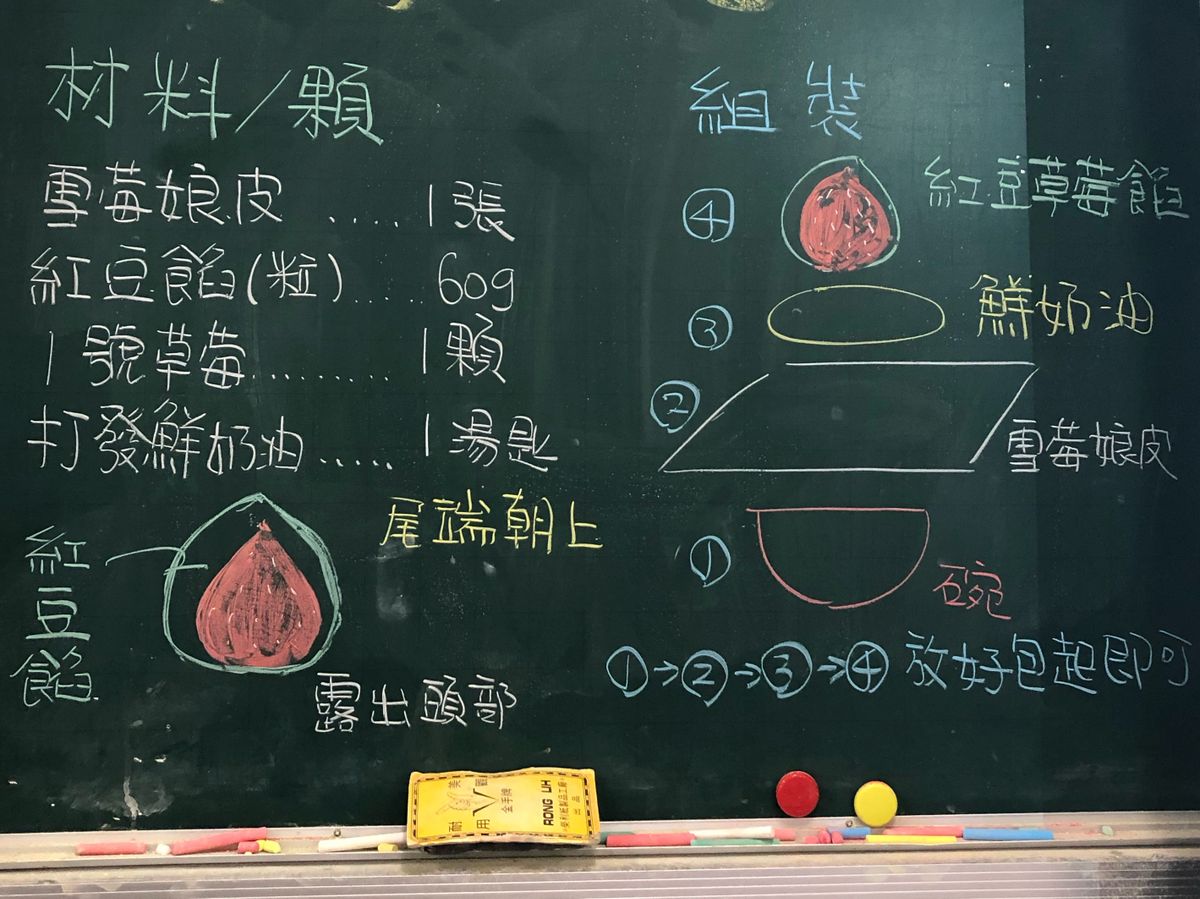 材料/顆
雪莓娘皮 ..... 1張
紅豆餡(粒)..... 60g
1號草莓........ 1顆
打發鮮奶油..... 1湯匙
尾端朝上
紅豆餡
露出頭部
組裝
④ 紅豆草莓餡
③ 鮮奶油
② 雪莓娘皮
① 碗
①→②→③→④ 放好包起即可
美國
金手牌
耐用
RONG LIH
出品